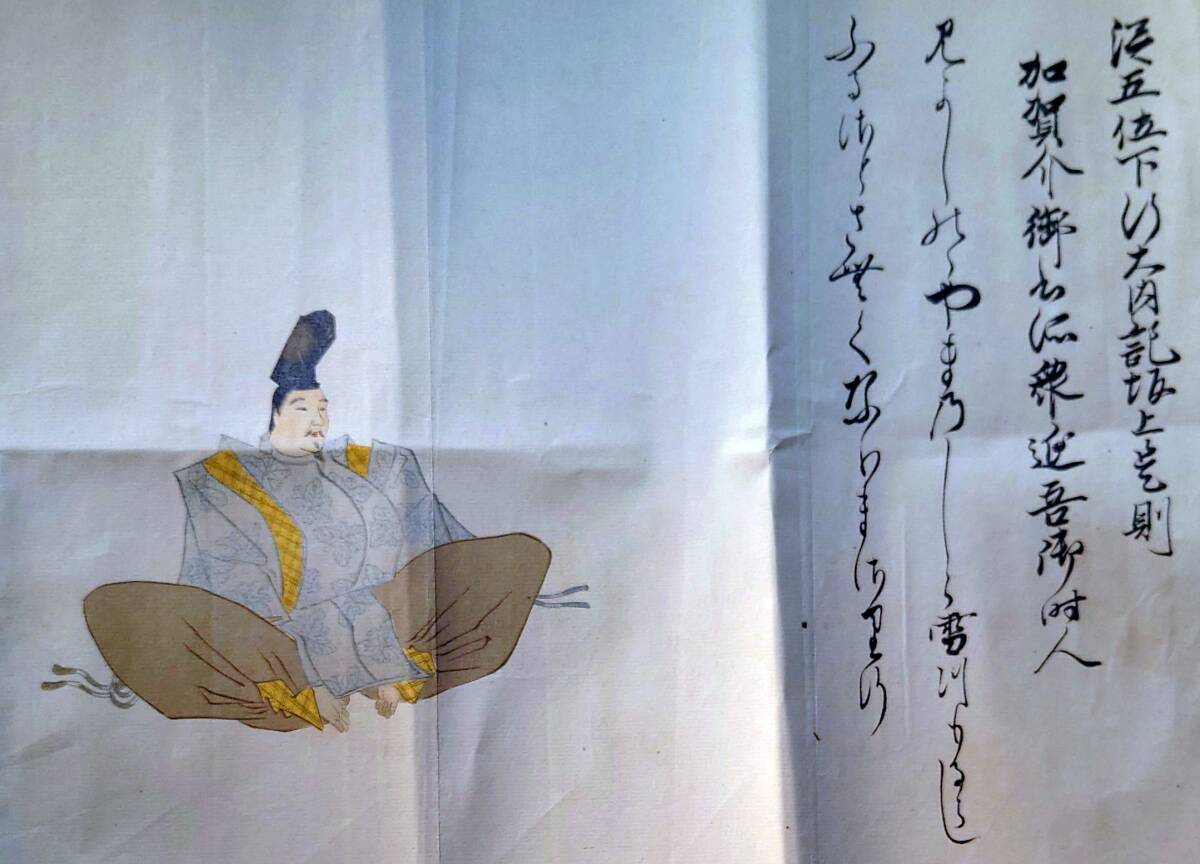 従五位下行大内記坂上是則
加賀介御書所衆延喜御時人
見よしのゝやま乃しら雪つもるらし
ふるさとさ無くなりまさるなり